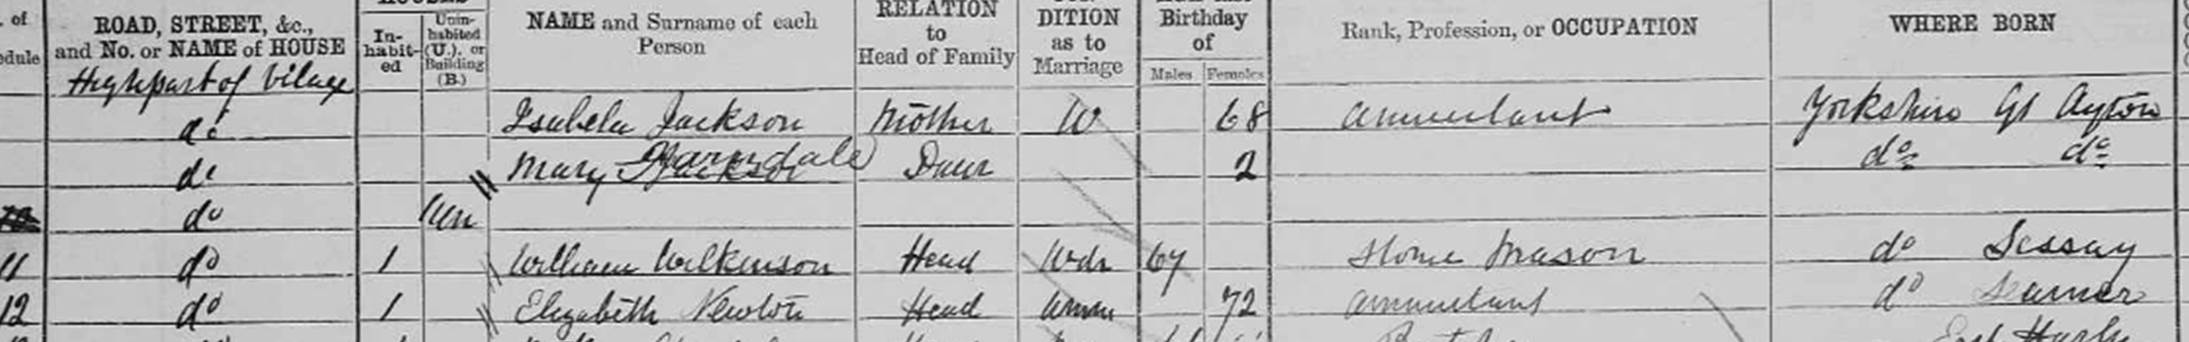 of ROAD, STREET, &c., Unin- NAME and Surname of each RELATION DITION Birthday Rank, Profession, or OCCUPATION WHERE BORN
dule and No. or NAME of HOUSE In-habit-ed habited (U.), or Building (B.) Person to Head of Family as to Marriage of Males Females
High part of Vilage
do Isabela Jackson Mother W 68 annuitant Yorkshire Gt Ayton
do Mary Jackson Farndale Daur 2 do do
do Un
11 do 1 William Wilkinson Head Wdr 67 Stone Mason do Sessay
12 do 1 Elizabeth Newton Head Unm 72 annuitant do Seamer
East